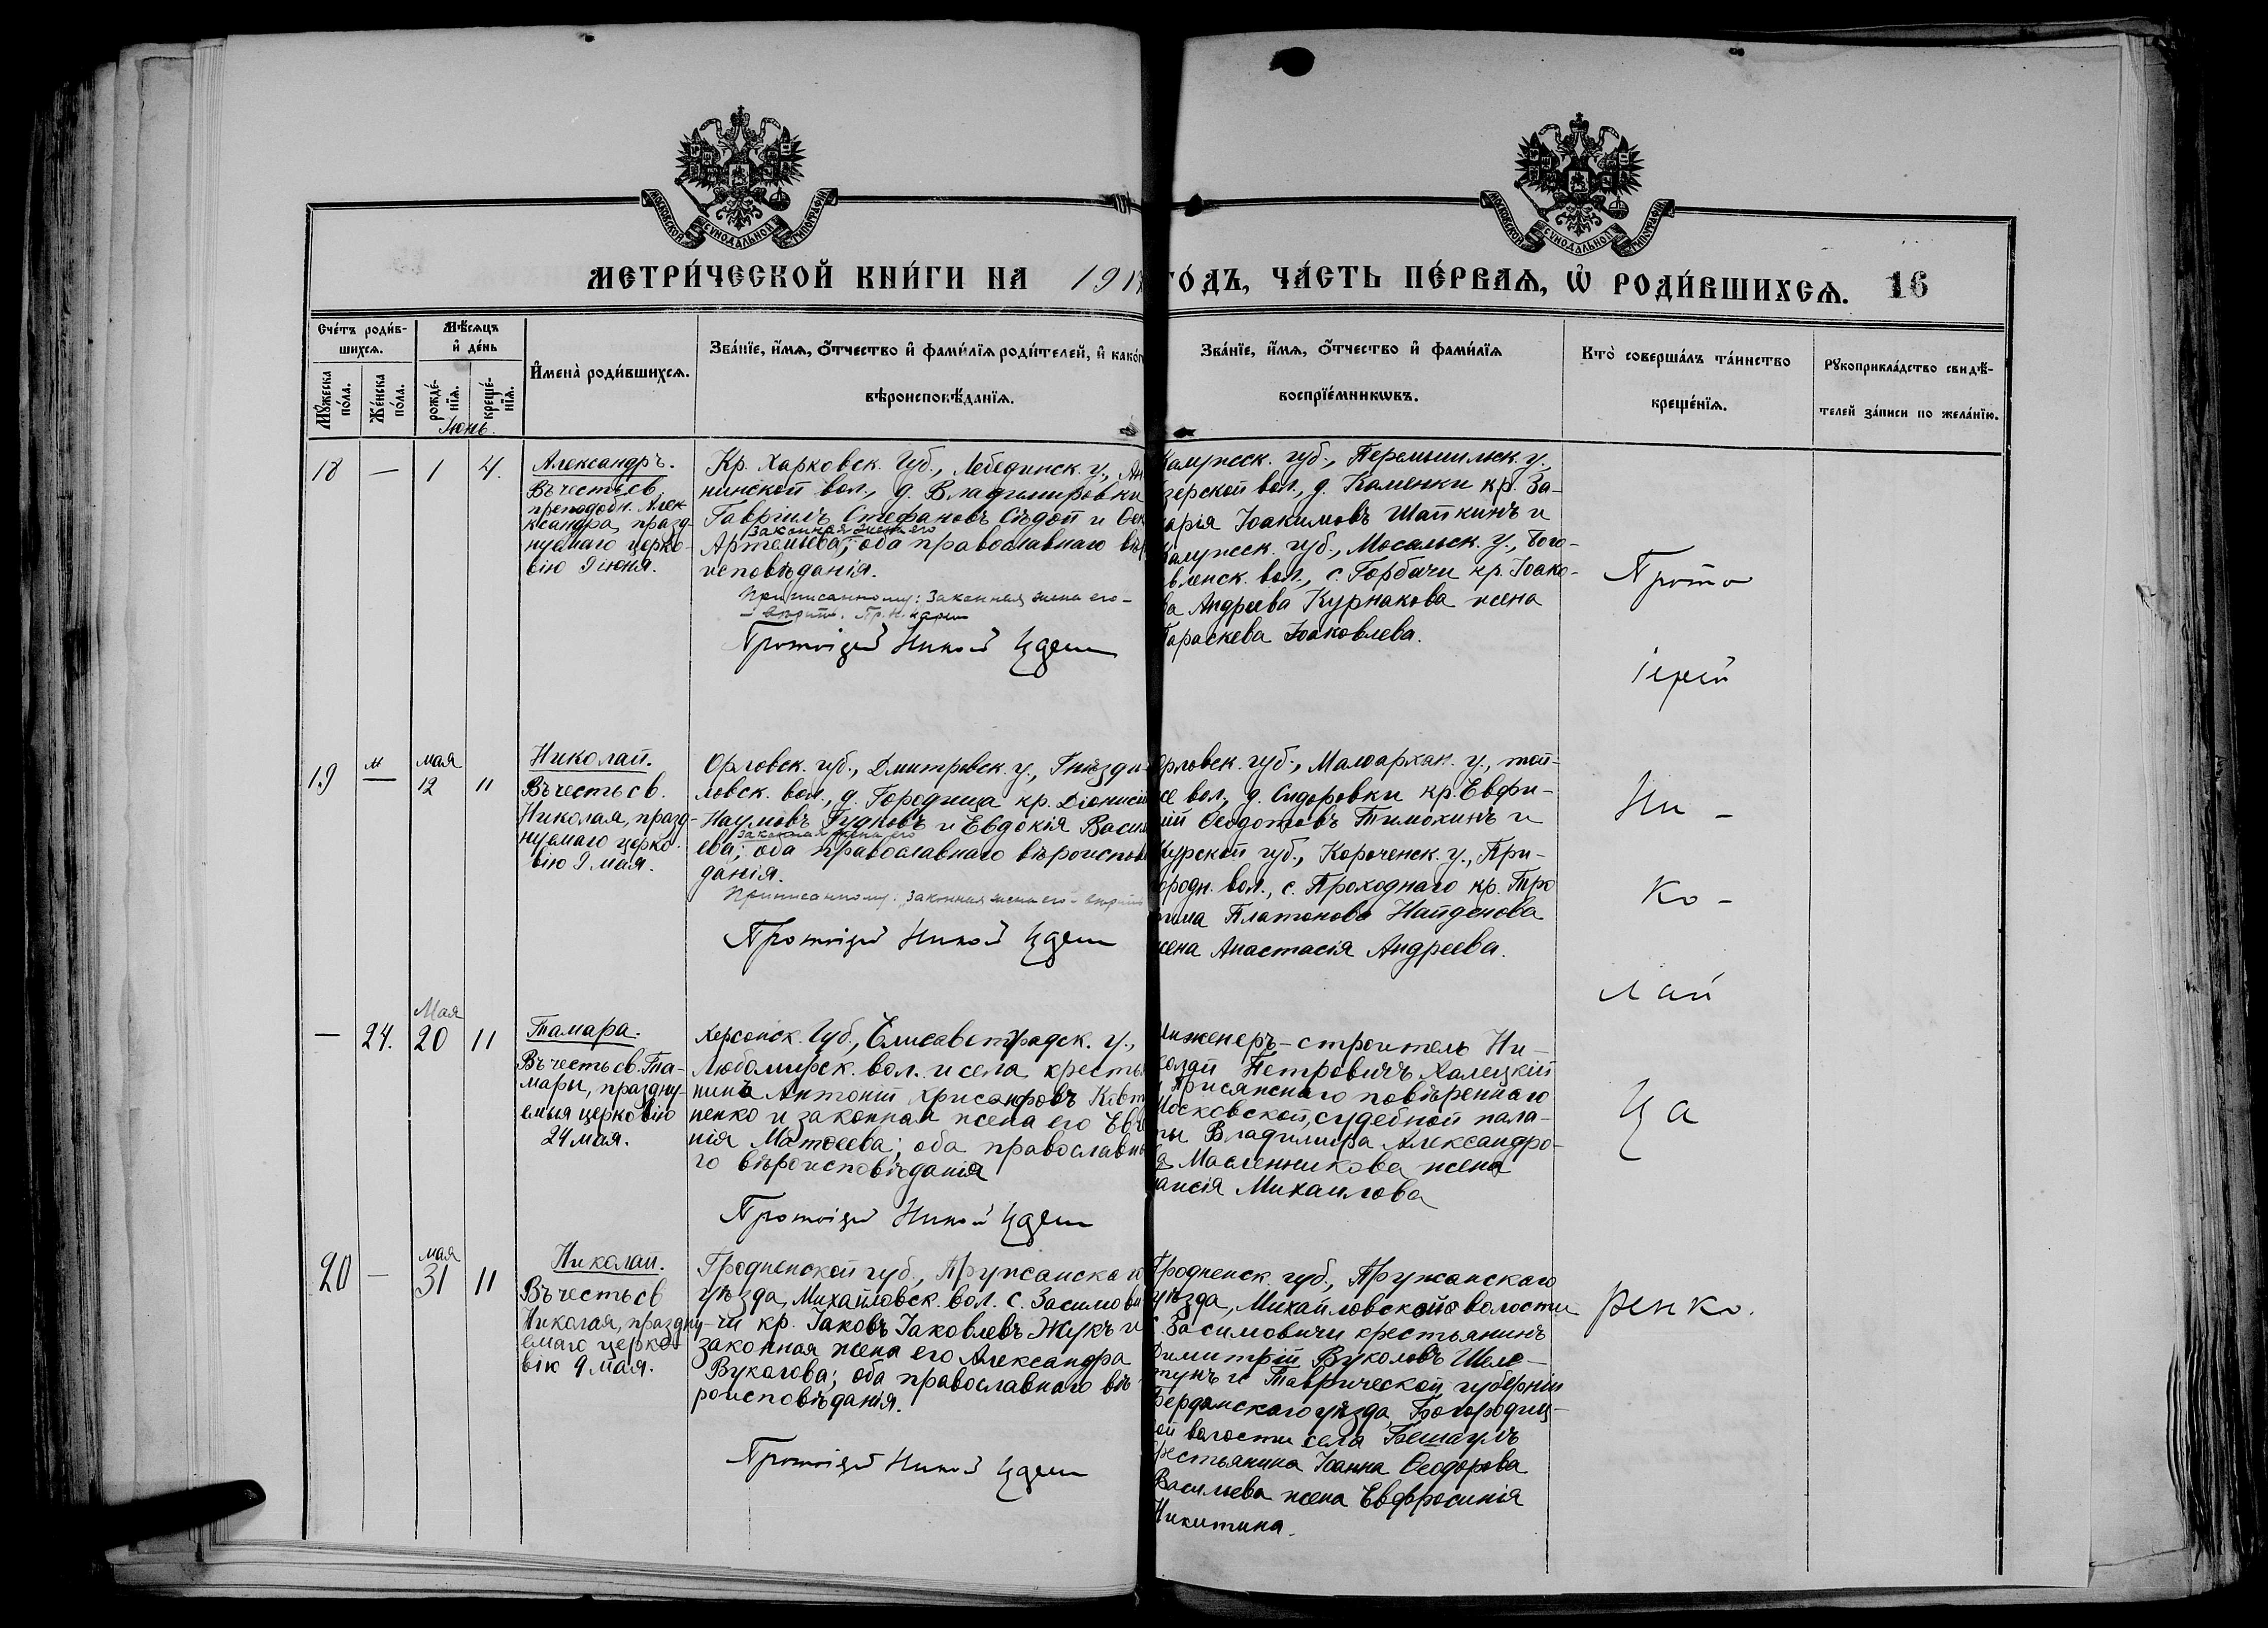 МОСКОВСКОЙ СѴНОДАЛЬНОЙ ТИПОГРАФІИ
МОСКОВСКОЙ СѴНОДАЛЬНОЙ ТИПОГРАФІИ
МЕТРИ́ЧЕСКОЙ КНИ́ГИ НА 191
ГО́ДЪ, ЧА́СТЬ ПЕ́РВАѦ, Ѡ҆ РОДИ́ВШИХСѦ. 16
Сче́тъ роди́в-
шихсѧ.
Мѣ́сѧцъ
и҆ де́нь
Мꙋ́жеска по́ла.
Же́нска по́ла.
рожде́-нїѧ.
креще́-нїѧ.
И҆мена̀ роди́вшихсѧ.
Зва́нїе, и҆́мѧ, ѻ҆́тчество и҆ фами́лїѧ роди́телей, и҆ како́г
вѣроисповѣ́данїѧ.
Зва́нїе, и҆́мѧ, ѻ҆́тчество и҆ фами́лїѧ
воспрїе́мникѡвъ.
Кто̀ соверша́лъ та́инство
креще́нїѧ.
Рꙋкоприкла́дство свидѣ́-
телей за́писи по жела́нїю.
Іюнь.
18 — 1 4.
Александръ.
Въ честь св.
преподобн. Алек
ксандра, празд-
нуемаго церко-
вію 9 июня.
Кр. Харковск. Губ., Лебединск. у., Ан
нинской вол., д. Владимировки
Гавріилъ Стефановъ Сѣдой и Ѳек
законная жена его
Артемьева; оба православнаго вѣр
исповѣданія.
Приписанному: Законная жена его -
вѣрить. Пр. Н.
Протоіерей Николай Царенко
Калужск. губ., Перемышльск. у.,
зерской вол., д. Каменки кр. За-
харія Іоакимовъ Шапкинъ и
Калужск. губ., Мосальск. у., Бого-
вленск. вол., с. Горбачи кр. Іако-
ва Андреева Курнакова жена
Параскева Іаковлева.
19 м — мая 12 11
Николай.
Въ честь св.
Николая, празд-
нуемаго церко-
вію 9 мая.
Орловск. губ., Дмитровск. у., Гнѣзди-
ловск. вол., д. Городища кр. Діонисій
Наумовъ Гудковъ и Евдокія Васил
законная жена его
ева; оба православнаго вѣроиспов
данія.
Приписанному: "Законная жена его - вѣрить
Протоіерей Николай Царенко
Орловск. губ., Малоархан. у., той-
же вол., д. Сидоровки кр. Евфи-
мій Ѳеодотовъ Тимохинъ и
Курской губ., Короченск. у., При-
городн. вол., с. Проходнаго кр. Тро
фима Платонова Найденова
жена Анастасія Андреева.
— 24. Мая 20 11
Тамара.
Въ честь св. Та-
мары, праздну-
емыя церковію
24 мая.
Херсонск. Губ., Елисаветградск. у.,
Любомирск. вол. и села крестья
нинъ Антоній Хрисанфовъ Ковт
ненко и законная жена его Евге
нія Матѳеева; оба православна
го вѣроисповѣданія
Протоіерей Николай Царенко
Инженеръ-строитель Ни-
колай Петровичъ Халецкій
и Присяжнаго повѣреннаго
Московской судебной пала-
ты Владимира Александро-
ва Масленникова жена
аисія Михаилова
20 — мая 31 11
Николай.
Въ честь св
Николая, праздну-
емаго церко-
вію 9 мая.
Гродненской губ., Пружанска
уѣзда, Михайловск. вол. с. Засимови
чи кр. Іаковъ Іаковлевъ Жукъ и
законная жена его Александра
Вуколова; оба православнаго вѣ-
роисповѣданія.
Протоіерей Николай Царенко
Гродненск. губ., Пружанскаго
уѣзда, Михайловской волости
с. Засимовичи крестьянинъ
Димитрій Вуколовъ Шеле-
тунъ и Таврической губерніи
Бердянскаго уѣзда, Богородиц-
кой волости села Бешаулъ
крестьянина Іоанна Ѳеодорова
Васильева жена Евфросинія
Никитина.
Прото
іерей
Ни -
ко -
лай
Ца
ренко.